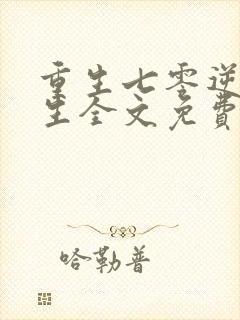 重生七零逆
生全文免费
哈勒普